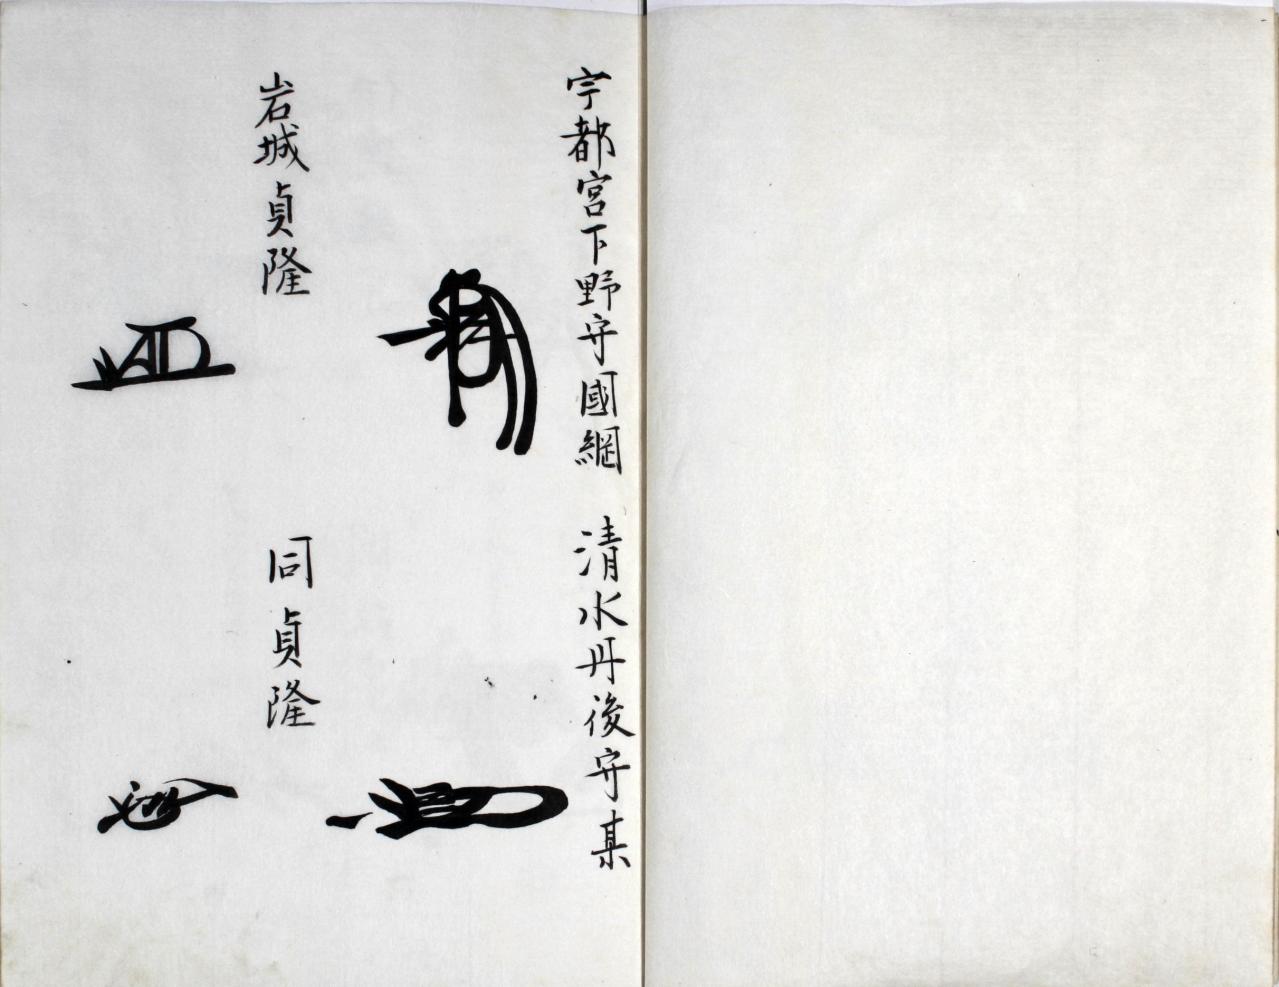 宇都宮下野守國綱
清水丹後守某
岩城貞隆
同貞隆